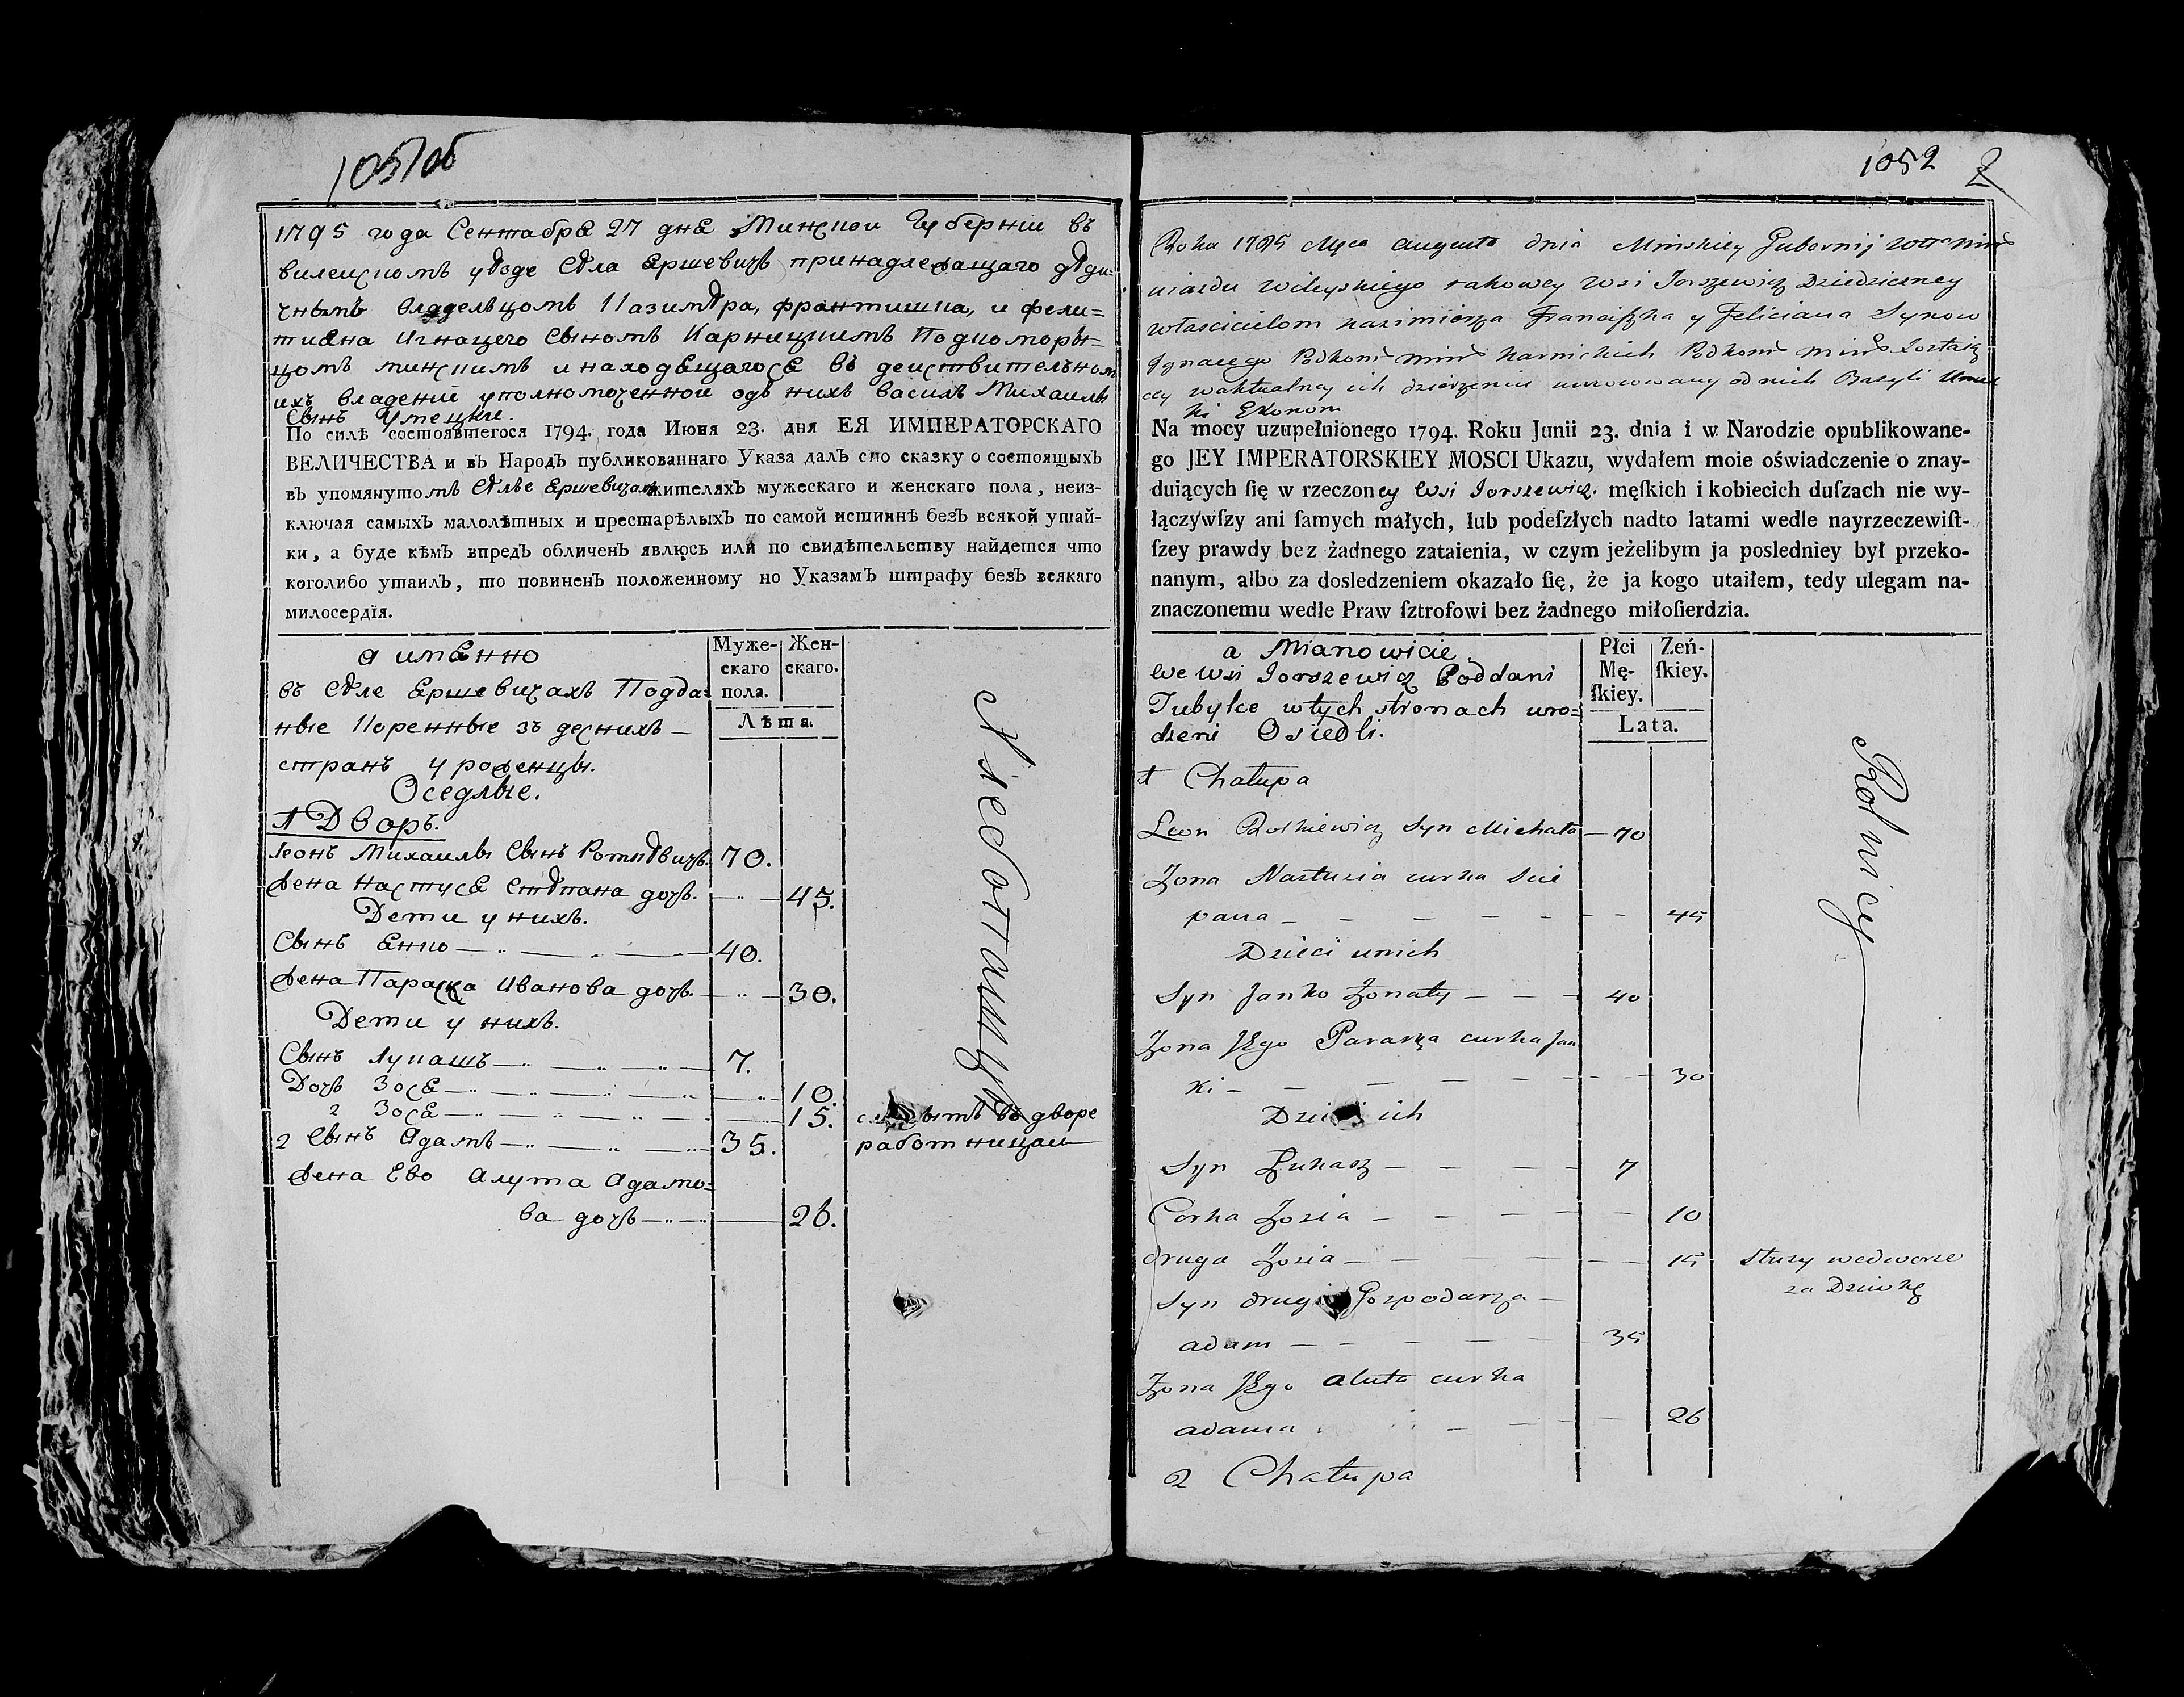 1051об
1795 года Сентабра 27 дна Минской Губерніи въ
вилейскомъ уѣзде Сѣла Ершевичъ принадлежащаго дѣди=
чнымъ владельцомъ Казимѣра, франтишка, и фели=
тиана Игнацего сыномъ Карницкимъ Подкоморы=
цомъ минскимъ и находащагоса въ действителъном
ихъ владеніе уполномоченной одъ нихъ василь Михаилы
Сынъ Умецкие.
По силѣ состоявшегося 1794. года Июня 23. дня ЕЯ ИМПЕРАТОРСКАГО
ВЕЛИЧЕСТВА и въ НародЪ публикованнаго Указа далЪ сію сказку о состоящыхъ
въ упомянутомъ Сѣлѣ Ершевичахъ жителяхЪ мужескаго и женскаго пола, неиз-
ключая самыхЪ малолѣтныхъ и престарѣлыхЪ по самой истиннѣ безЪ всякой утай-
ки, а буде кѣмЪ впредъ обличенЪ явлюсь или по свидѣтельству найдется что
коголибо утаилЪ, то повиненЪ положенному по УказамЪ штрафу безЪ всякаго
милосердїя.
а имѣнно
въ Сѣле Ершевичахъ Подда=
ные Коренные зъ деснихъ —
странъ уроженцы.
Оседлые.
Муже-
скаго
пола.
Жен-
скаго.
Лѣта.
1 Дворъ.
Леонъ Михаилы Сынъ Роткѣвичъ. 70.
Жена Настуса Стѣпана дочъ. 45.
Дети у нихъ.
Сынъ Анко 40.
Жена Параска Иванова дочъ. 30.
Дети у нихъ.
Сынъ Лукашъ 7.
Дочъ Зоса 10.
2 Зоса 15. въ дворе
работницаи
2 Сынъ Адамъ 35.
Жена Ево Алута Адамо=
ва дочъ 26.
1052 2
Roku 1795 Mca Augusta dnia Minskiey Gubernij
uiazdu Wileyskiego takowey Wsi Jorszewicz Dziedziczney
właścicielom Kazimierza Franciszka y Feliciana Synow
Ignacego Podkom Minś Karnickich Podkom Minś Zostaią
cey waktualney ich dzierzeniu umocowany od nich Bazyli Umec
ki Ekonom
Na mocy uzupełnionego 1794. Roku Junii 23. dnia i w Narodzie opublikowane-
go JEY IMPERATORSKIEY MOSCI Ukazu, wydałem moie oświadczenie o znay-
duiących ſię w rzeczoney Wsi Jorszewicz. męſkich i kobiecich duſzach nie wy-
łączywſzy ani ſamych małych, lub podeſzłych nadto latami wedle nayrzeczewiſt-
ſzey prawdy bez żadnego zataienia, w czym jeżelibym ja posledniey był przeko-
nanym, albo za dosledzeniem okazało ſię, że ja kogo utaiłem, tedy ulegam na-
znaczonemu wedle Praw ſztrofowi bez żadnego miłoſierdzia.
a Mianowicie
we Wsi Jorszewicz Poddani
Tubylce wtych stronach uro=
dzeni Osiedli.
Płci
Mę-
ſkiey.
Zeń-
ſkiey.
Lata.
1 Chałupa
Leon Rotkiewicz Syn Michała 70
Zona Nastusia curka Scie
pana 45
Dzieci unich
Syn Janko Zonaty 40
Zona Jego Paraska curka Jan
ki 30
Dzieci ich
Syn Łukasz 7
Corka Zosia 10
druga Zosia 15 służy wedworze
za Dziwkę
Syn drugi Gospodarza
adam 35
Zona Jego aluta curka
adama 26
2 Chałupa
Rolnicy